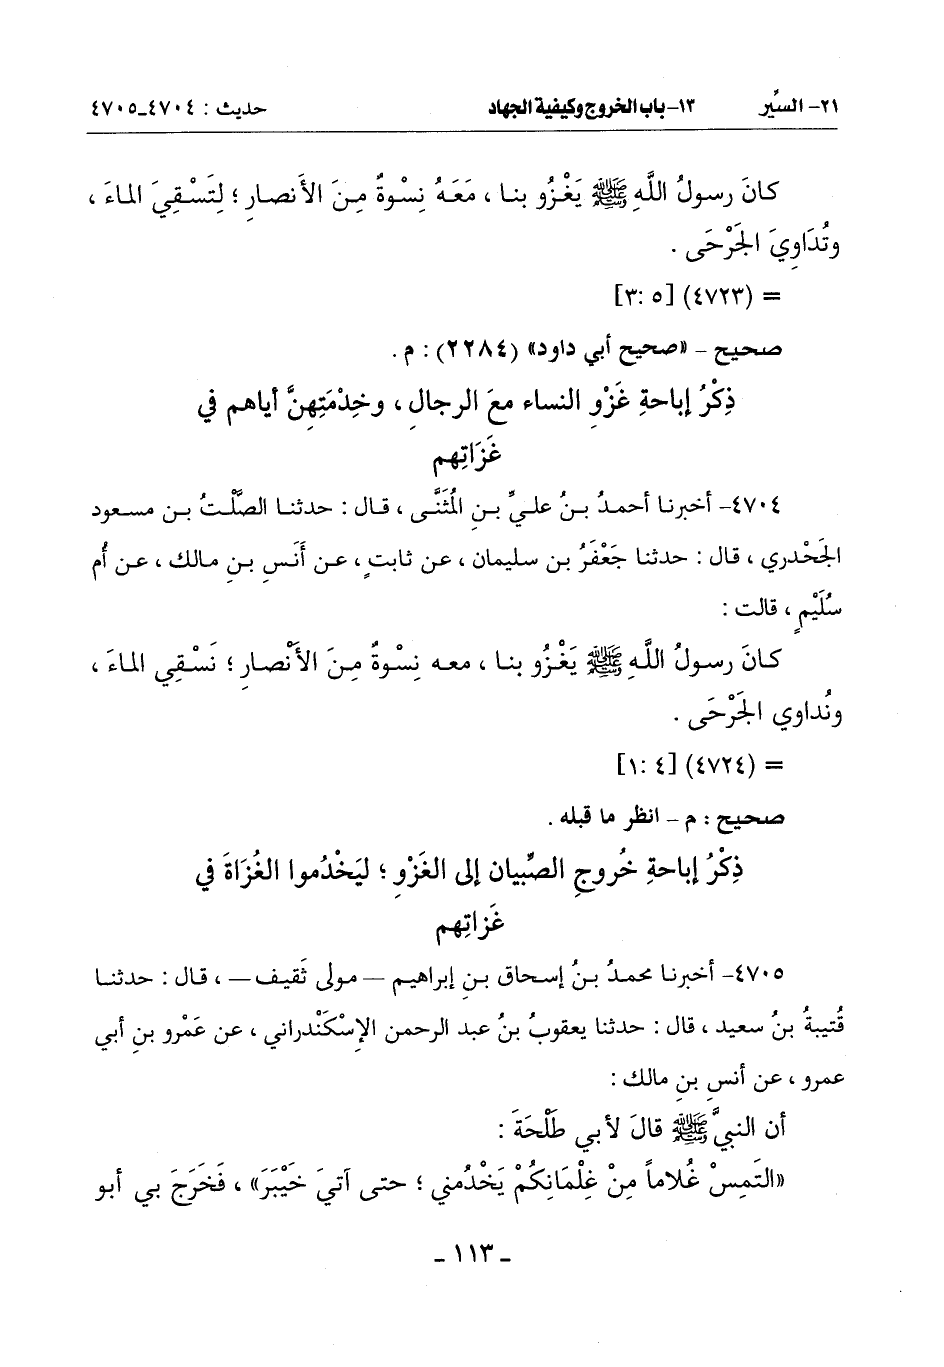 ٢١- السِّير ١٣- باب الخروج وكيفية الجهاد حديث : ٤٧٠٤_٤٧٠٥
كانَ رسولُ اللَّهِ ﷺ يَغْزُو بنا ، مَعَهُ نِسْوةٌ مِنَ الأَنصارِ ؛ لِتَسْقِيَ الماءَ ،
وتُدَاوِيَ الجَرْحَى .
= (٤٧٢٣) [٥ :٣]
صحيح – «صحيح أبي داود» (٢٢٨٤) : م .
ذِكْرُ إباحةِ غَزْوِ النساء معَ الرجالِ ، وخِدْمَتِهِنَّ أياهم في
غَزَاتِهم
٤٧٠٤- أخبرنا أحمدُ بنُ عليِّ بنِ المُثَنَّى ، قال : حدثنا الصَّلْتُ بن مسعود
الجَحْدري ، قال : حدثنا جَعْفَرُ بن سليمان ، عن ثابتٍ ، عن أَنَسِ بنِ مالك ، عن أُم
سُلَيْمٍ ، قالت :
كانَ رسولُ اللَّهِ ﷺ يَغْزُو بنا ، معه نِسْوةٌ مِنَ الأَنْصارِ ؛ نَسْقِي الماءَ ،
ونُداوي الجَرْحَى .
= (٤٧٢٤) [٤ :١]
صحيح : م – انظر ما قبله .
ذِكْرُ إباحةِ خُروجِ الصِّبيان إلى الغَزْوِ ؛ ليَخْدُموا الغُزَاةَ في
غَزاتِهم
٤٧٠٥- أخبرنا محمدُ بنُ إسحاق بنِ إبراهيم – مولى ثَقيف – ، قال : حدثنا
قُتيبةُ بنُ سعيد ، قال : حدثنا يعقوبُ بنُ عبد الرحمن الإسْكَنْدراني ، عن عَمْرو بنِ أبي
عمرو ، عن أنسِ بنِ مالك :
أن النبيَّ ﷺ قالَ لأبي طَلْحَةَ :
«التَمِسْ غُلاماً مِنْ غِلْمَانِكُمْ يَخْدُمني ؛ حتى آتيَ خَيْبَرَ» ، فَخَرَجَ بي أبو
- ١١٣ -